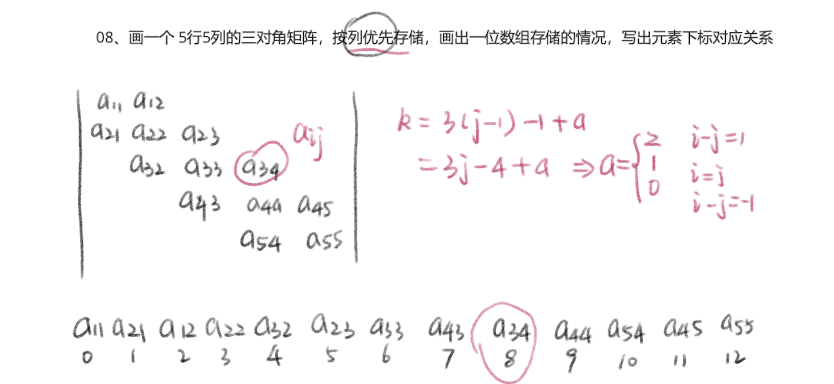 08、画一个 5行5列的三对角矩阵，按列优先存储，画出一位数组存储的情况，写出元素下标对应关系
a11 a12
a21 a22 a23
a32 a33 a34
a43 a44 a45
a54 a55
aij
k = 3(j-1)-1+a
=3j-4+a ⇒ a={ 2 i-j=1
1 i=j
0 i-j=-1
a11 a21 a12 a22 a32 a23 a33 a43 a34 a44 a54 a45 a55
0 1 2 3 4 5 6 7 8 9 10 11 12